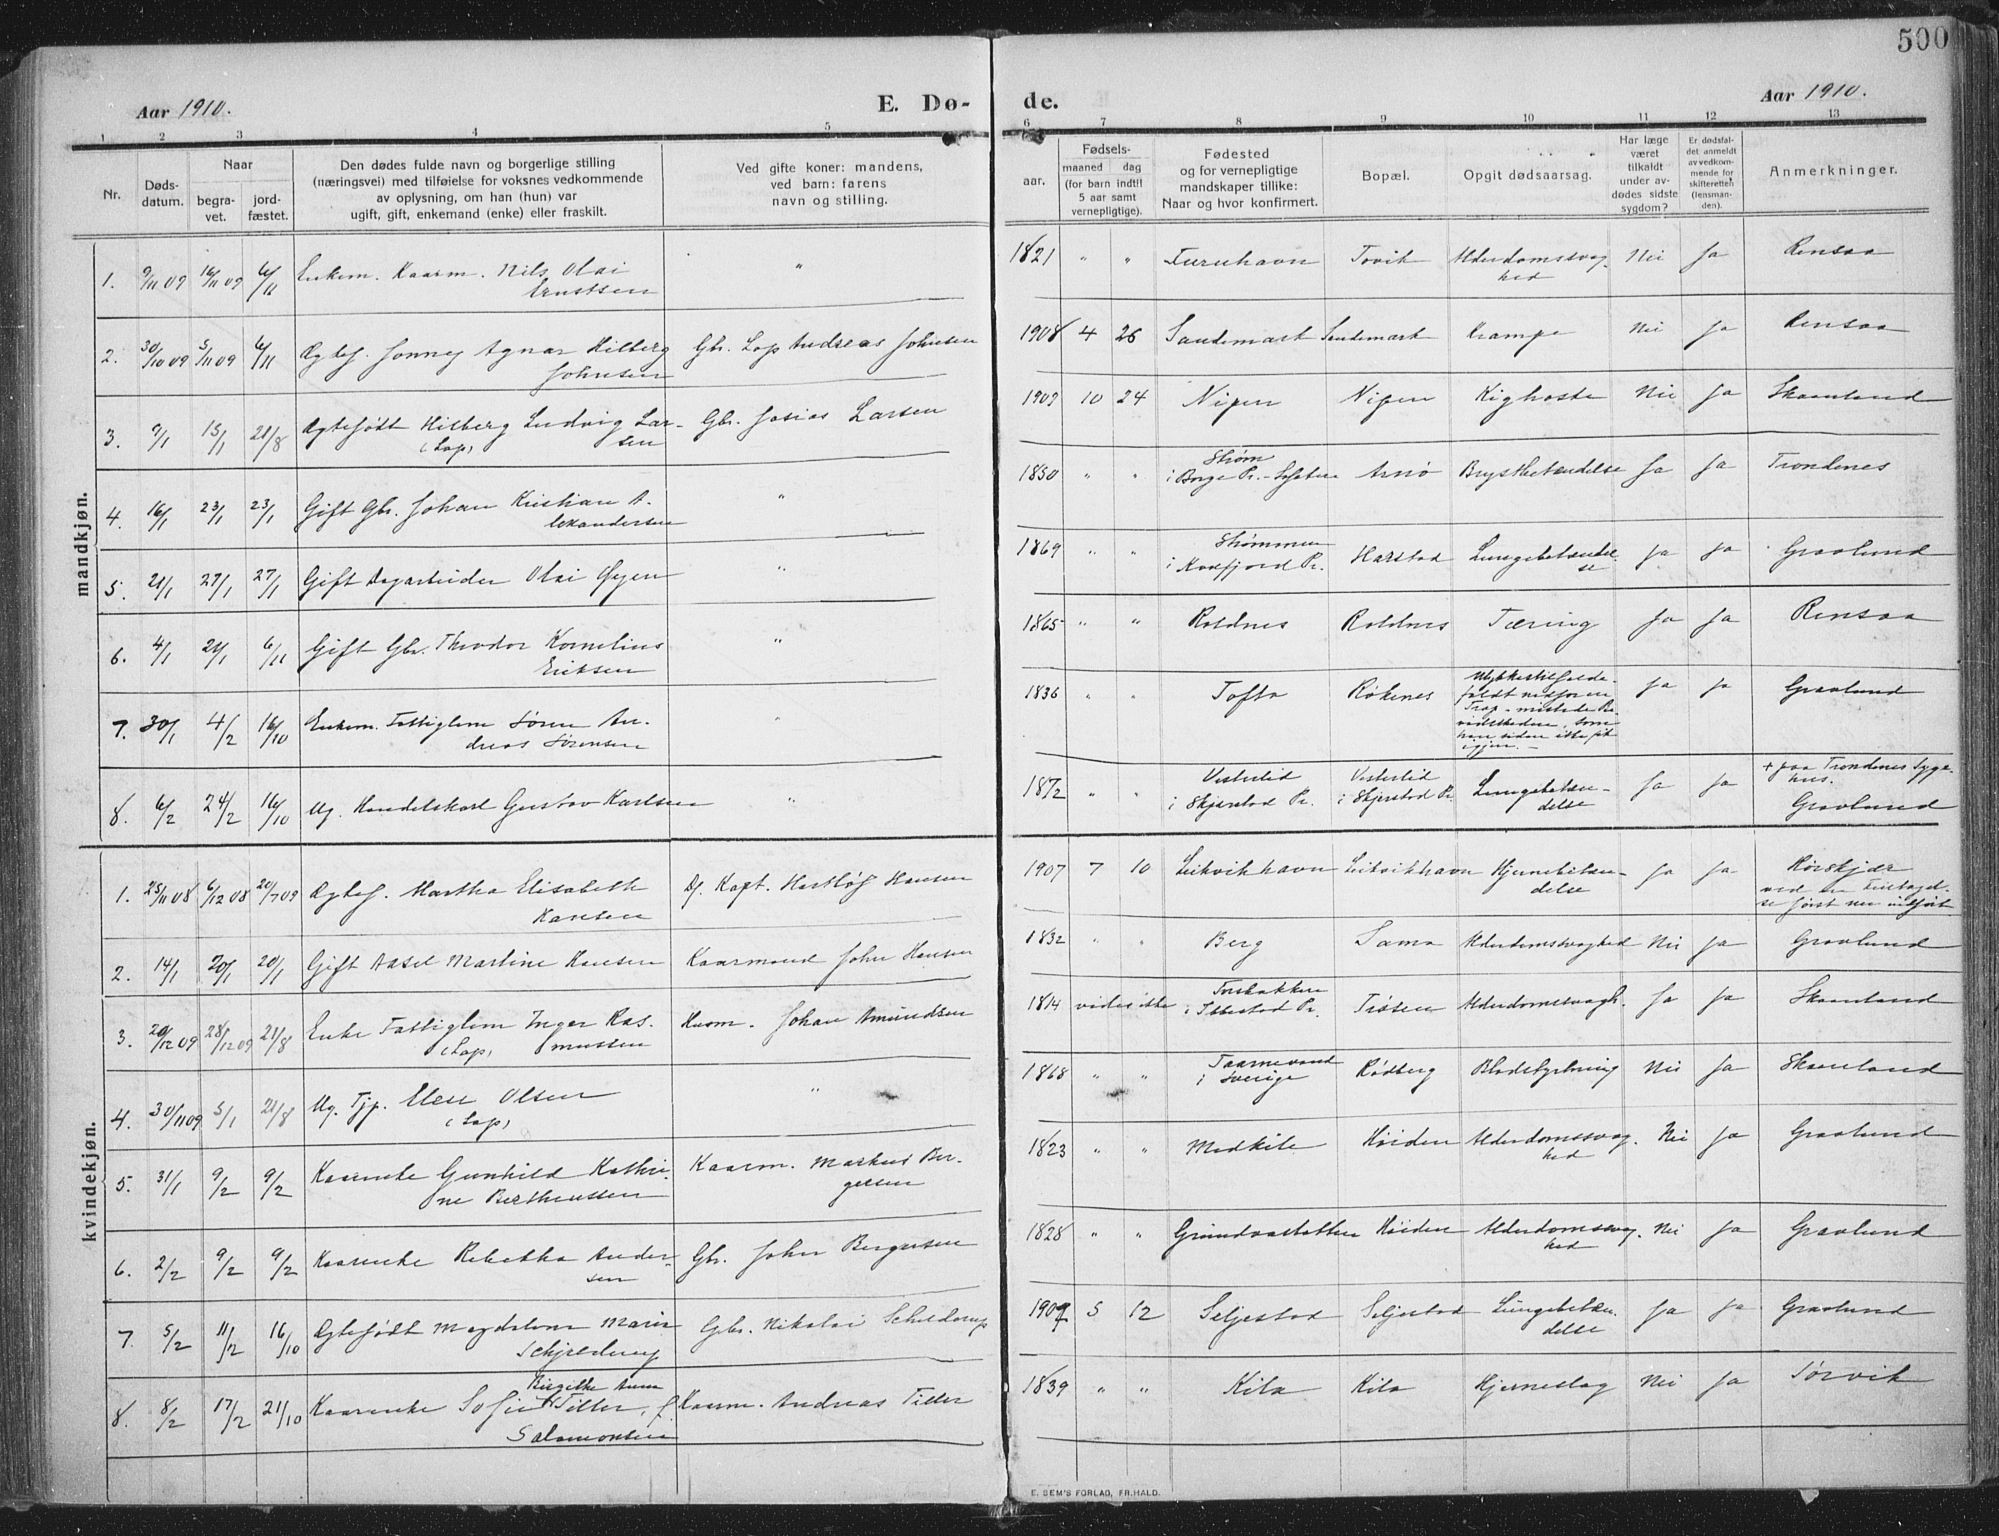 500
Aar 1910.
E. Dø-
de.
Aar 1910.
1 2 3 4 5 6 7 8 9 10 11 12 13
Nr.
Døds-
datum.
Naar
begra-
vet.
jord-
fæstet.
Den dødes fulde navn og borgerlige stilling
(næringsvei) med tilføielse for voksnes vedkommende
av oplysning, om han (hun) var
ugift, gift, enkemand (enke) eller fraskilt.
Ved gifte koner: mandens,
ved barn: farens
navn og stilling.
Fødsels-
aar.
maaned dag
(for barn indtil
5 aar samt
vernepligtige).
Fødested
og for vernepligtige
mandskaper tillike:
Naar og hvor konfirmert.
Bopæl.
Opgit dødsaarsag.
Har læge
været
tilkaldt
under av-
dødes sidste
sygdom?
Er dødsfal-
det anmeldt
av vedkom-
mende for
skifteretten
(lensman-
den).
Anmerkninger.
mandkjøn.
1. 9/11 09 16/11 09 6/11 Enkem. Kaarm. Nils Olai
Ernstsen
" 1821 " " Furuhavn Tovik Alderdomssvag-
hed Nei Ja Rensaa
2. 30/10 09 5/11 09 6/11 Ægtef. Jonney Agnar Hilberg
Johnsen
Gbr. Lap Andreas Johnsen 1908 4 26 Sandemark Sandemark Krampe Nei Ja Rensaa
3. 9/1 15/1 21/8 Ægtefødt Hilberg Ludvig Lar-
(Lap) sen
Gbr. Josias Larsen 1909 10 24 Nipen Nipen Kighoste Nei Ja Skaanland
4. 16/1 23/1 23/1 Gift Gbr. Johan Kristian A-
leksandersen
" 1850 " " Strøm
i Borge Pr. - Lofoten Arnø Brystbetændelse Ja Ja Trondenes
5. 21/1 27/1 27/1 Gift Dagarbeider Olai Øyen
" 1869 " " Strømmen
i Kvæfjord Pr. Harstad Lungebetændel-
se Ja Ja Gravlund
6. 4/1 21/1 6/11 Gift Gbr. Theodor Kornelius
Eriksen
" 1865 " " Roldnes Roldnes Tæring Ja Ja Rensaa
7. 30/1 4/2 16/10 Enkem. Fattiglem Søren An-
dreas Sørensen
" 1836 " " Tofta Røkenes Ulykkestilfælde-
faldt nedfor en
Trap - mistede Be-
vidstheden, som
han siden ikke fik
igjen. - Ja Ja Gravlund
8. 6/2 24/2 16/10 Ug. Handelskarl Gustav Karlsen
" 1872 " " Vesterlid
i Skjerstad Pr. Vesterlid
i Skjerstad Pr. Lungebetæn-
delse Ja Ja + paa Trondenes Syge-
hus.
Gravlund
kvindekjøn.
1. 25/11 08 6/12 08 20/7 09 Ægtef. Martha Elisabeth
Hansen
Df. Kapt. Hartløf Hansen 1907 7 10 Leikvikhavn Leikvikhavn Hjernebetæn-
delse Ja Ja Rørskjær
ved en Feiltagel-
se først nu indført
2. 14/1 20/1 20/1 Gift Aasel Martine Hansen
Kaarmand John Hansen 1832 " " Berg Sama Alderdomssvaghed Nei Ja Gravlund
3. 20/12 09 28/12 09 21/8 Enke Fattiglem Inger Ras-
(Lap) mussen
Kaarm. Johan Amundsen 1814 vides ikke Forsbakken
i Ibbestad Pr. Trøsen Alderdomssvagh. Ja Ja Skaanland
4. 30/11 09 5/1 21/8 Ug. Tjp. Elen Olsen
(Lap)
" 1868 " " Taarnevand
i Sverige Rødberg Blodstyrtning Nei Ja Skaanland
5. 31/1 9/2 9/2 Kaarenke Gunhild Kathri-
ne Bertheussen
Kaarm. Markus Ber-
gersen 1823 " " Medkile Høiden Alderdomssvag-
hed Nei Ja Gravlund
6. 2/2 9/2 9/2 Kaarenke Rebekka Ander-
sen
Gbr. John Bergersen 1828 " " Grundvastatten Høiden Alderdomssvag-
hed Nei Ja Gravlund
7. 5/2 11/2 16/10 Ægtefødt Magdalena Marie
Schjelderup
Gbr. Nikolai Schelderup 1909 5 12 Seljestad Seljestad Lungebetæn-
delse Ja Ja Gravlund
8. 8/2 17/2 21/10 Kaarenke Sofie Birgithe Anna Tiller, f.
Salamonsen
Kaarm. Andreas Tiller 1839 " " Kila Kila Hjerneslag Nei Ja Sørvik
E. SEM'S FORLAG, FR.HALD.